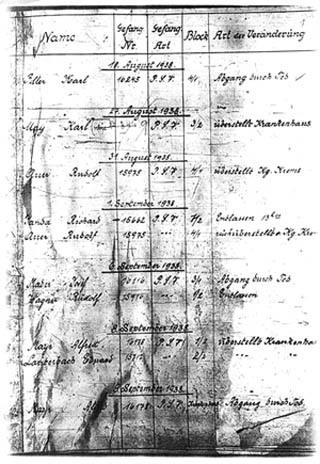 Name Gefang. Nr. Gefang. Art Block Art der Veränderung
18. August 1938.
Karl 16245 P.S.V. 4/1 Abgang durch Tod
27. August 1938.
May Karl P.S.V. 3/2 überstellt Krankenhaus
31. August 1938.
Auer Rudolf 15975 P.S.V. 4/1 überstellt Kg. Krems
1. September 1938.
Richard 15662 P.S.V. 7/2 Entlassen
Auer Rudolf 15975 --- 4/1 rücküberstellt v. Kg. Kre
6. September 1938.
Josef 16116 P.S.V. 3/1 Abgang durch Tod
Wagner Rudolf --- Entlassen
8. September 1938.
Mayr Alfred 16178 P.S.V. überstellt Krankenha
Lauterbach --- 2/2 " "
September 1938.
Mayr 16178 P.S.V. Abgang durch Tod.